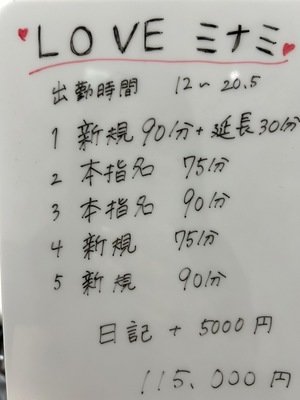 LOVE ミナミ
出勤時間 12〜20.5
1 新規 90分+延長30分
2 本指名 75分
3 本指名 90分
4 新規 75分
5 新規 90分
日記 + 5000円
115,000円